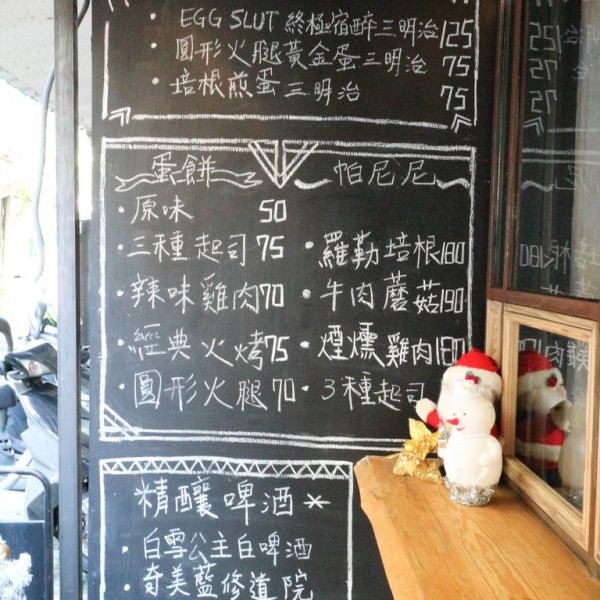 · EGG SLUT 終極宿醉三明治 125
· 圓形火腿黃金蛋三明治 75
· 培根煎蛋三明治 75
蛋餅
· 原味 50
· 三種起司 75
· 辣味雞肉 70
· 經典火烤 75
· 圓形火腿 70
帕尼尼
· 羅勒培根 180
· 牛肉蘑菇 190
· 煙燻雞肉 180
· 3種起司
精釀啤酒
· 白雪公主白啤酒
· 奇美藍修道院